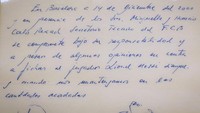 En Barcelona a 14 de Diciembre del 2000
en presencia de los Sres Minguella y Horacio
Carles Rexach Secretario Técnico del F.C.B
se compromete bajo su responsabilidad y
a pesar de algunas opiniones en contra
a fichar al jugador Lionel Messi siempre
y cuando nos mantengamos en las
cantidades acordadas